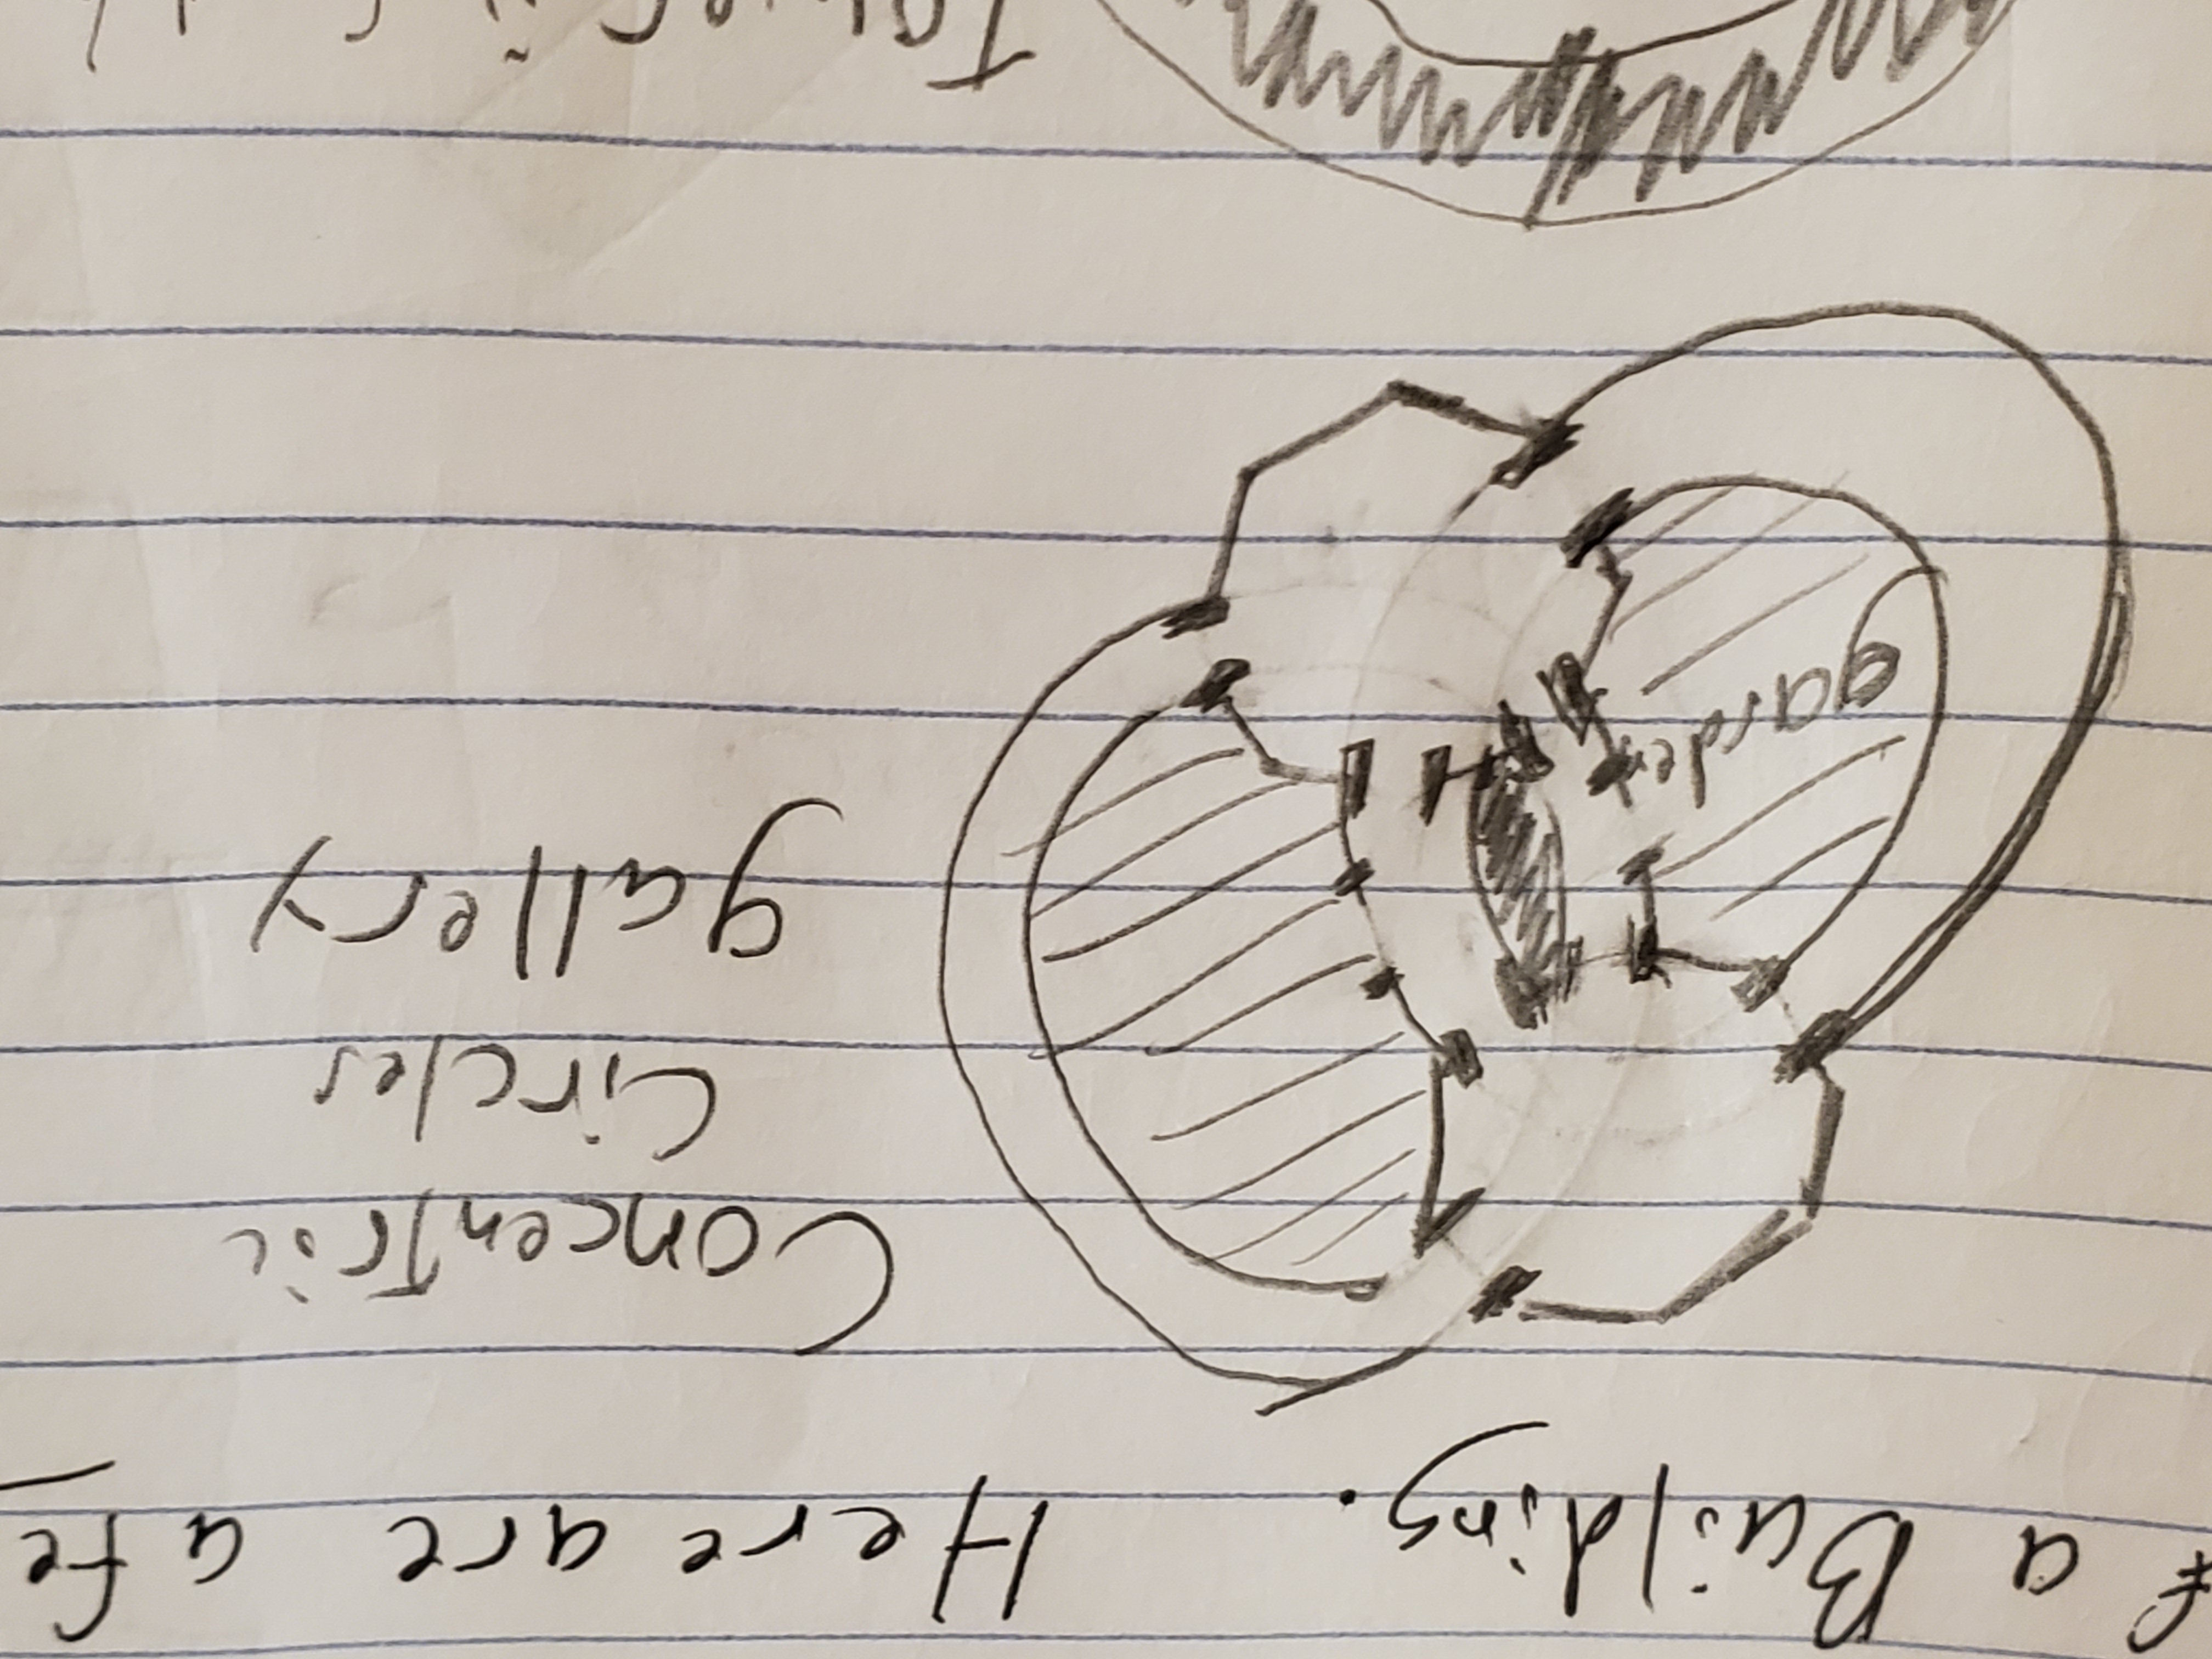 f a Building. Here are a fe
Concentric
Circles
gallery
garden
Tower is